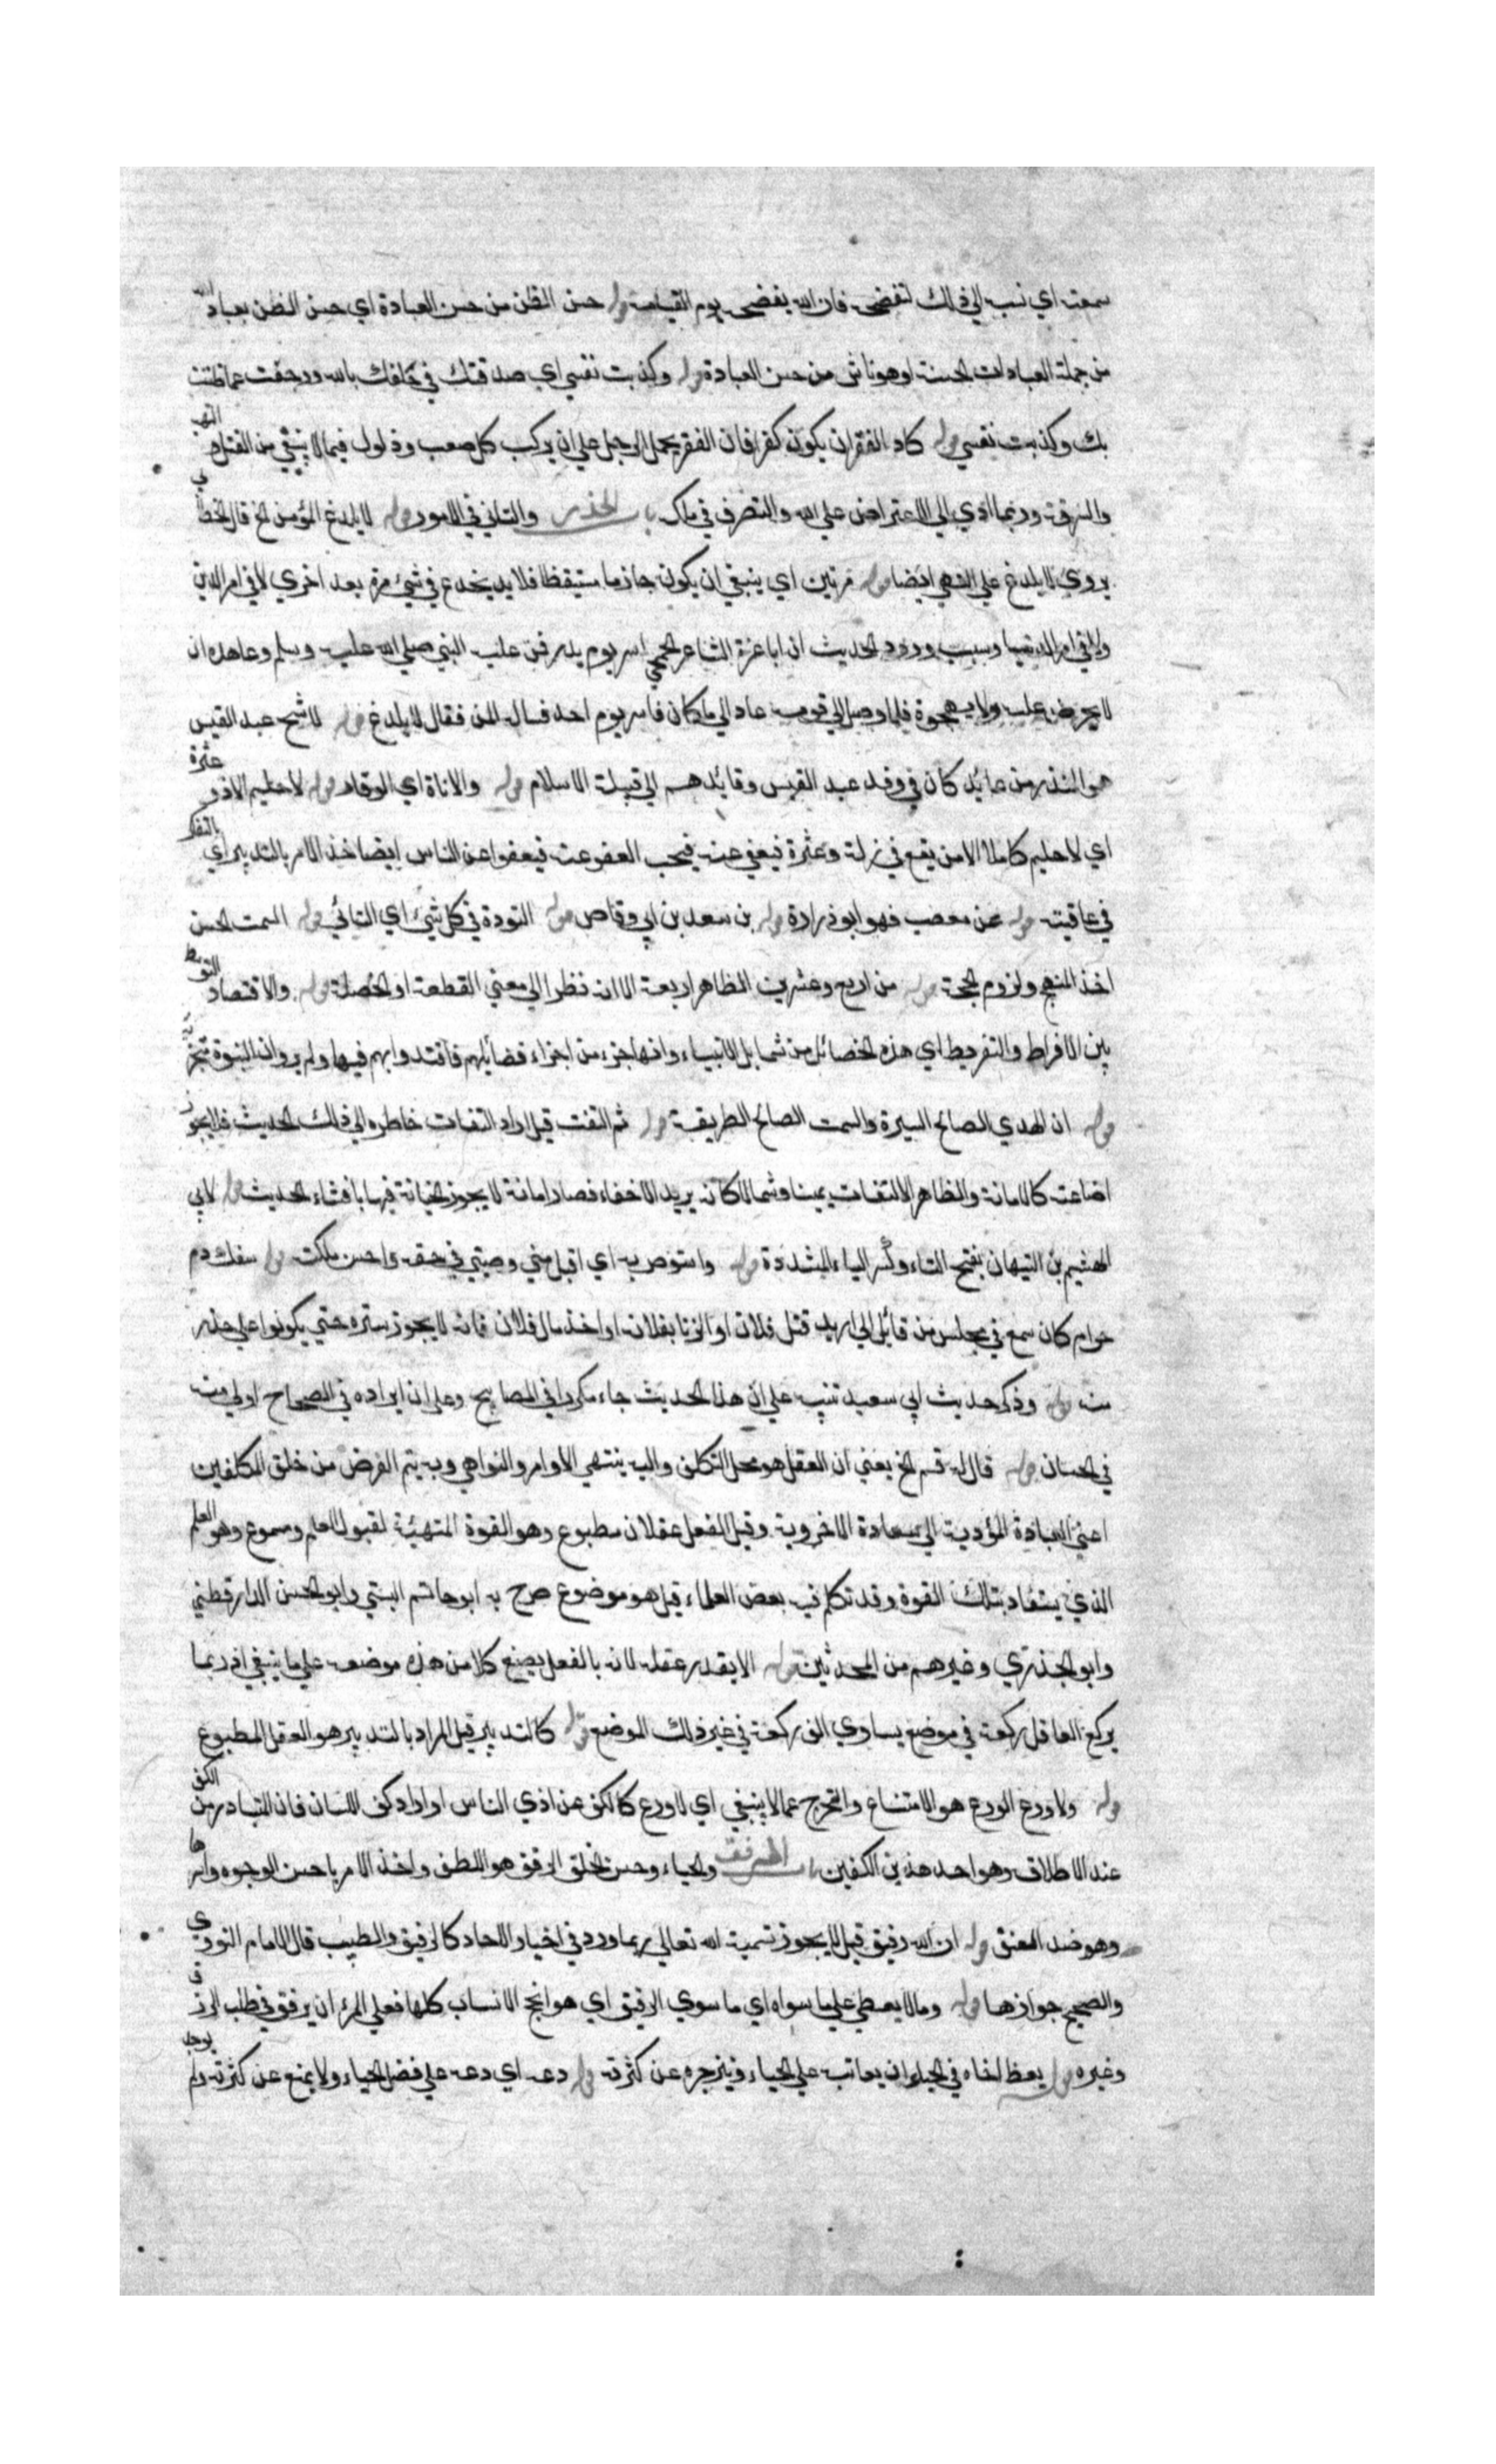 سمعته اي نسب الي ذلك لتفضحه فان الله يفضحه يوم القيامة قوله حسن الظن من حسن العبادة اي حسن الظن بعباد الله
من جملة العبادات الحسنة او هو ناش من حسن العبادة قوله وكذبت نفسي اي صدقتك في حلفك بالله ورجعت عما ظننت
بك وكذبت نفسي قوله كاد الفقر ان يكون كفرا فان الفقر يحمل الرجل علي ان يركب كل صعب وذلول فيما لا ينبغي من القتل والنهب
والسرقة وربما ادي الي الاعتراض علي الله والتصرف في ملكه باب الحذر والتاني في الامور قوله لا يلدغ المؤمن الخ قال الخطابي
يروي لا يلدغ علي النهي ايضا قوله مرتين اي ينبغي ان يكون حازما مستيقظا فلا يخدع في شيء مرة بعد اخري لا في امر الدين
ولا في امر الدنيا وسبب ورود الحديث ان ابا عزة الشاعر الجمحي اسر يوم بدر فمن عليه النبي صلي الله عليه وسلم وعاهده ان
لا يحرض عليه ولا يهجوه فلما وصل الي قومه عاد الي ما كان فاسر يوم احد فسال المن فقال لا يلدغ قوله لاشج عبد القيس
هو المنذر من عايد كان في وفد عبد القيس وقائدهم الي قبيلة الاسلام قوله والاناة اي الوقار قوله لا حليم الا ذو عثرة
اي لا حليم كاملا الا من يقع في زلة وعثرة فيعفي عنه فيحب العفو عنه فيعفوا عن الناس ايضا خذ الامر بالتدبير اي بالتفكر
في عاقبته قوله عن مصعب فهو ابو زرارة قوله بن سعد بن ابي وقاص قوله التودة في كل شيء اي التائي قوله السمت الحسن
اخذ المنهج ولزوم المحجة قوله من اربع وعشرين الظاهر اربعة الا انه نظرا الي معني القطعة او الخصلة قوله والاقتصاد التوسط
بين الافراط والتفريط اي هذه الخصائل من شمايل الانبياء وانها جزء من اجزاء فضائلهم فاقتدوا بهم فيها ولم يرد ان النبوة تتجزء
قوله ان الهدي الصالح السيرة والسمت الصالح الطريقة قوله ثم التفت قيل اراد التفات خاطره الي ذلك الحديث فلا يجوز
اضاعته كالامانة والظاهر الالتفات يمينا وشمالا كانه يريد الاخفاء فصار امانة لا يجوز الخيانة فيها بافشاء الحديث قوله لابي
الهثيم بن التيهان بفتح التاء وكسر الياء المشددة قوله واستوص به اي اقبل مني وصيتي في حقه واحسن ملكته قوله سفك دم
حرام كان سمع في مجلس من قائل اني اريد قتل فلان او الزنا بفلانة او اخذ مال فلان فانه لا يجوز ستره حتي يكونوا علي حذر
منه قوله وذكر حديث ابي سعيد تنبيه علي ان هذا الحديث جاء مكررا في المصابيح وعلي ان ايراده في الصحاح اولي منه
في الحسان قوله قال له قم الخ يعني ان العقل هو محل التكلف واليه ينتهي الاوامر والنواهي وبه يتم الغرض من خلق المكلفين
اعني العبادة المؤدية الي السعادة الاخروية وقيل الفعل عقلان مطبوع وهو القوة المتهيئة لقبول العلم ومسموع وهو العلم
الذي يستفاد بتلك القوة وقد تكلم فيه بعض العلماء قيل هو موضوع صرح به ابو حاتم البستي وابو الحسن الدارقطني
وابو الجذري وغيرهم من المحدثين قوله الا بقدر عقله لانه بالفعل يصنع كلا من هذه موضعه علي ما ينبغي اذ ربما
يركع العاقل ركعة في موضع يساوي الف ركعة في غير ذلك الموضع قوله كالتدبير قيل المراد بالتدبير هو العقل المطبوع
قوله ولا ورع الورع هو الامتناع والتحرج عما لا ينبغي اي لا ورع كالكف عن اذي الناس او اراد كف اللسان فان المتبادر من الكف
عند الاطلاق وهو احد هذين الكفين باب الرفق والحياء وحسن الخلق الرفق هو اللطف واخذ الامر باحسن الوجوه وايسرها
وهو ضد العنق قوله ان الله رفيق قيل لا يجوز تسمية الله تعالي بما ورد في اخبار الاحاد كالرفيق والطبيب قال الامام النووي
والصحيح جوازها قوله وما لا يعطي علي ما سواه اي ما سوي الرفيق اي هو انجح الانساب كلها فعلي المرء ان يرفق في طلب الرزق
وغيره قوله يعظ اخاه في الحياء اي يعاتبه علي الحياء ويزجره عن كثرته قوله دعه اي دعه علي فضل الحياء ولا يمنع عن كثرته ولم يوجد